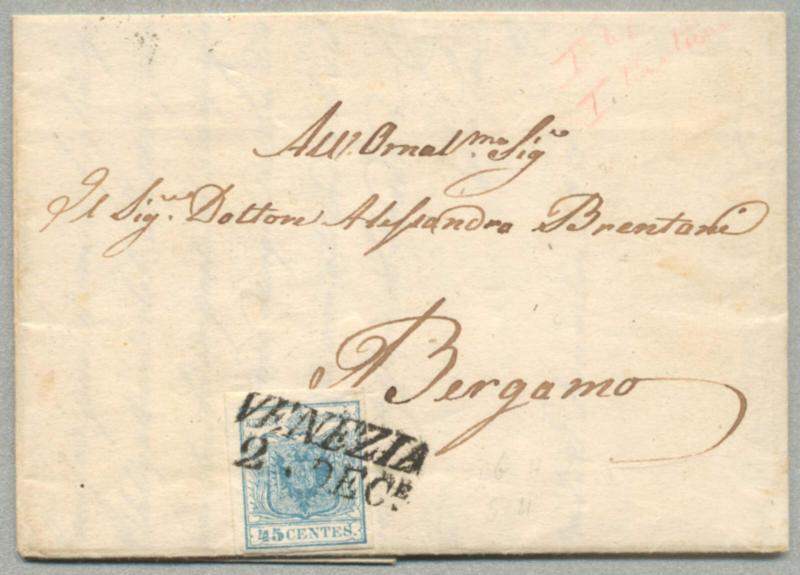 All'. Ornat.mo Sig.e
Il Sig.re Dottore Alessandro Brentani
Bergamo
VENEZIA
2. DECE.
45 CENTES.